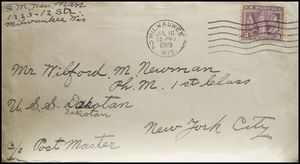 S. M. Newman
1223-12 Str.
Milwaukee Wis
MILWAUKEE
JUL 16
12 PM
1919
WIS.
Mr Wilford M. Newman
Ph. M. 1st Class
U.S.S. Dakotan
Dakotan
New York City
c/o Post Master